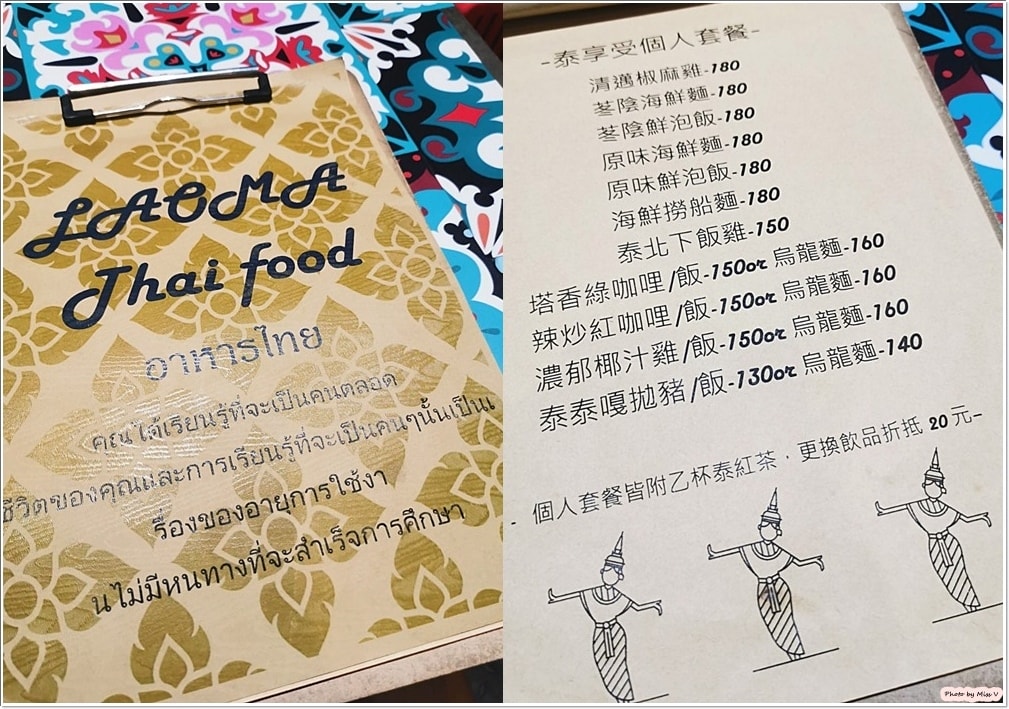 LAOMA
Thai food
อาหารไทย
คุณได้เรียนรู้ที่จะเป็นคนตลอด
ชีวิตของคุณและการเรียนรู้ที่จะเป็นคนๆนั้นเป็นเ
รื่องของอายุการใช้งา
นไม่มีหนทางที่จะสำเร็จการศึกษา
-泰享受個人套餐-
清邁椒麻雞-180
苳陰海鮮麵-180
苳陰鮮泡飯-180
原味海鮮麵-180
原味鮮泡飯-180
海鮮撈船麵-180
泰北下飯雞-150
塔香綠咖哩/飯-150or 烏龍麵-160
辣炒紅咖哩/飯-150or 烏龍麵-160
濃郁椰汁雞/飯-150or 烏龍麵-160
泰泰嘎拋豬/飯-130or 烏龍麵-140
- 個人套餐皆附乙杯泰紅茶，更換飲品折抵 20 元-
Photo by Miss V